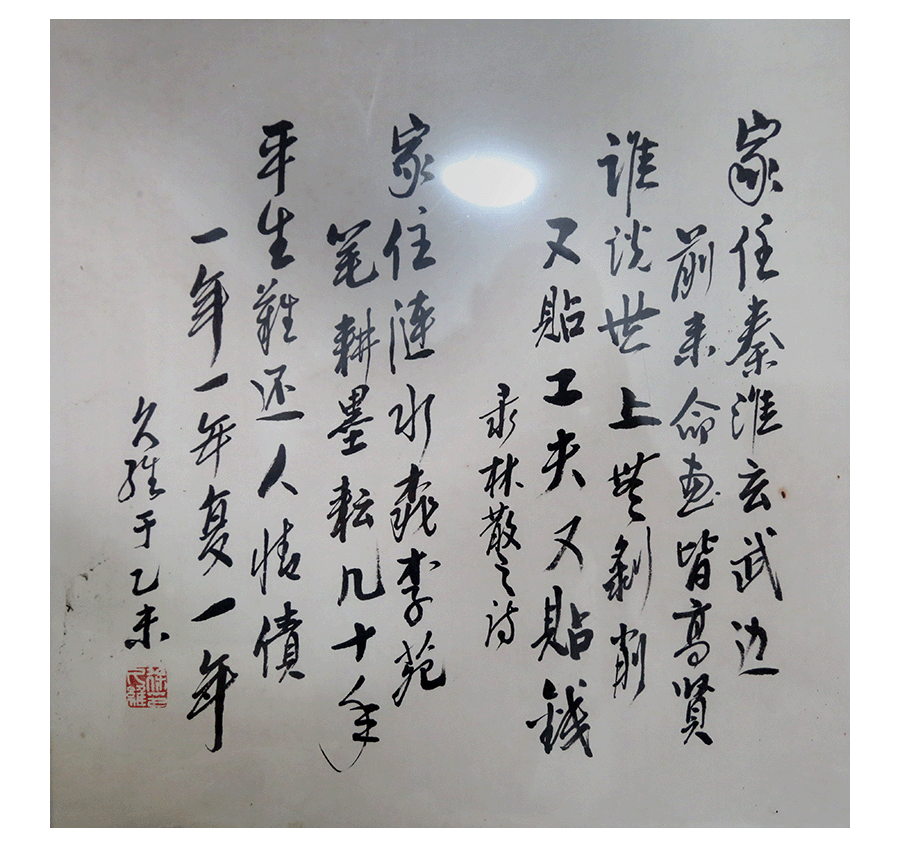 家住秦淮玄武边
前来命画皆高贤
谁说世上无剥削
又贴工夫又贴钱
录林散之诗
家住涟水桃李苑
笔耕墨耘几十年
平生难还人情债
一年一年复一年
久维于乙未